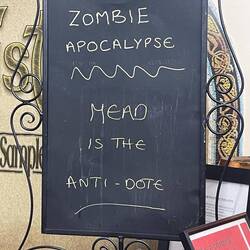 ZOMBIE
APOCALYPSE
MEAD
IS THE
ANTI-DOTE
Sample